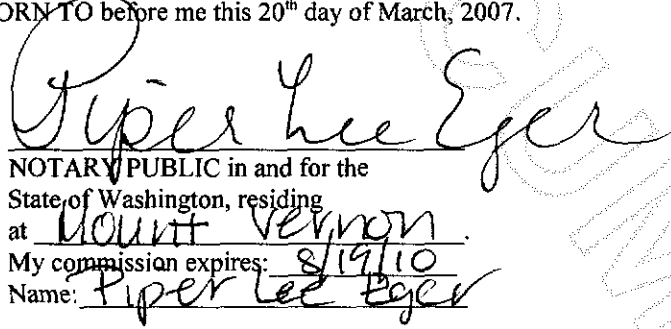 ORN TO before me this 20th day of March, 2007.
Piper Lee Eger
NOTARY PUBLIC in and for the
State of Washington, residing
at Mount Vernon.
My commission expires: 8/19/10
Name: Piper Lee Eger